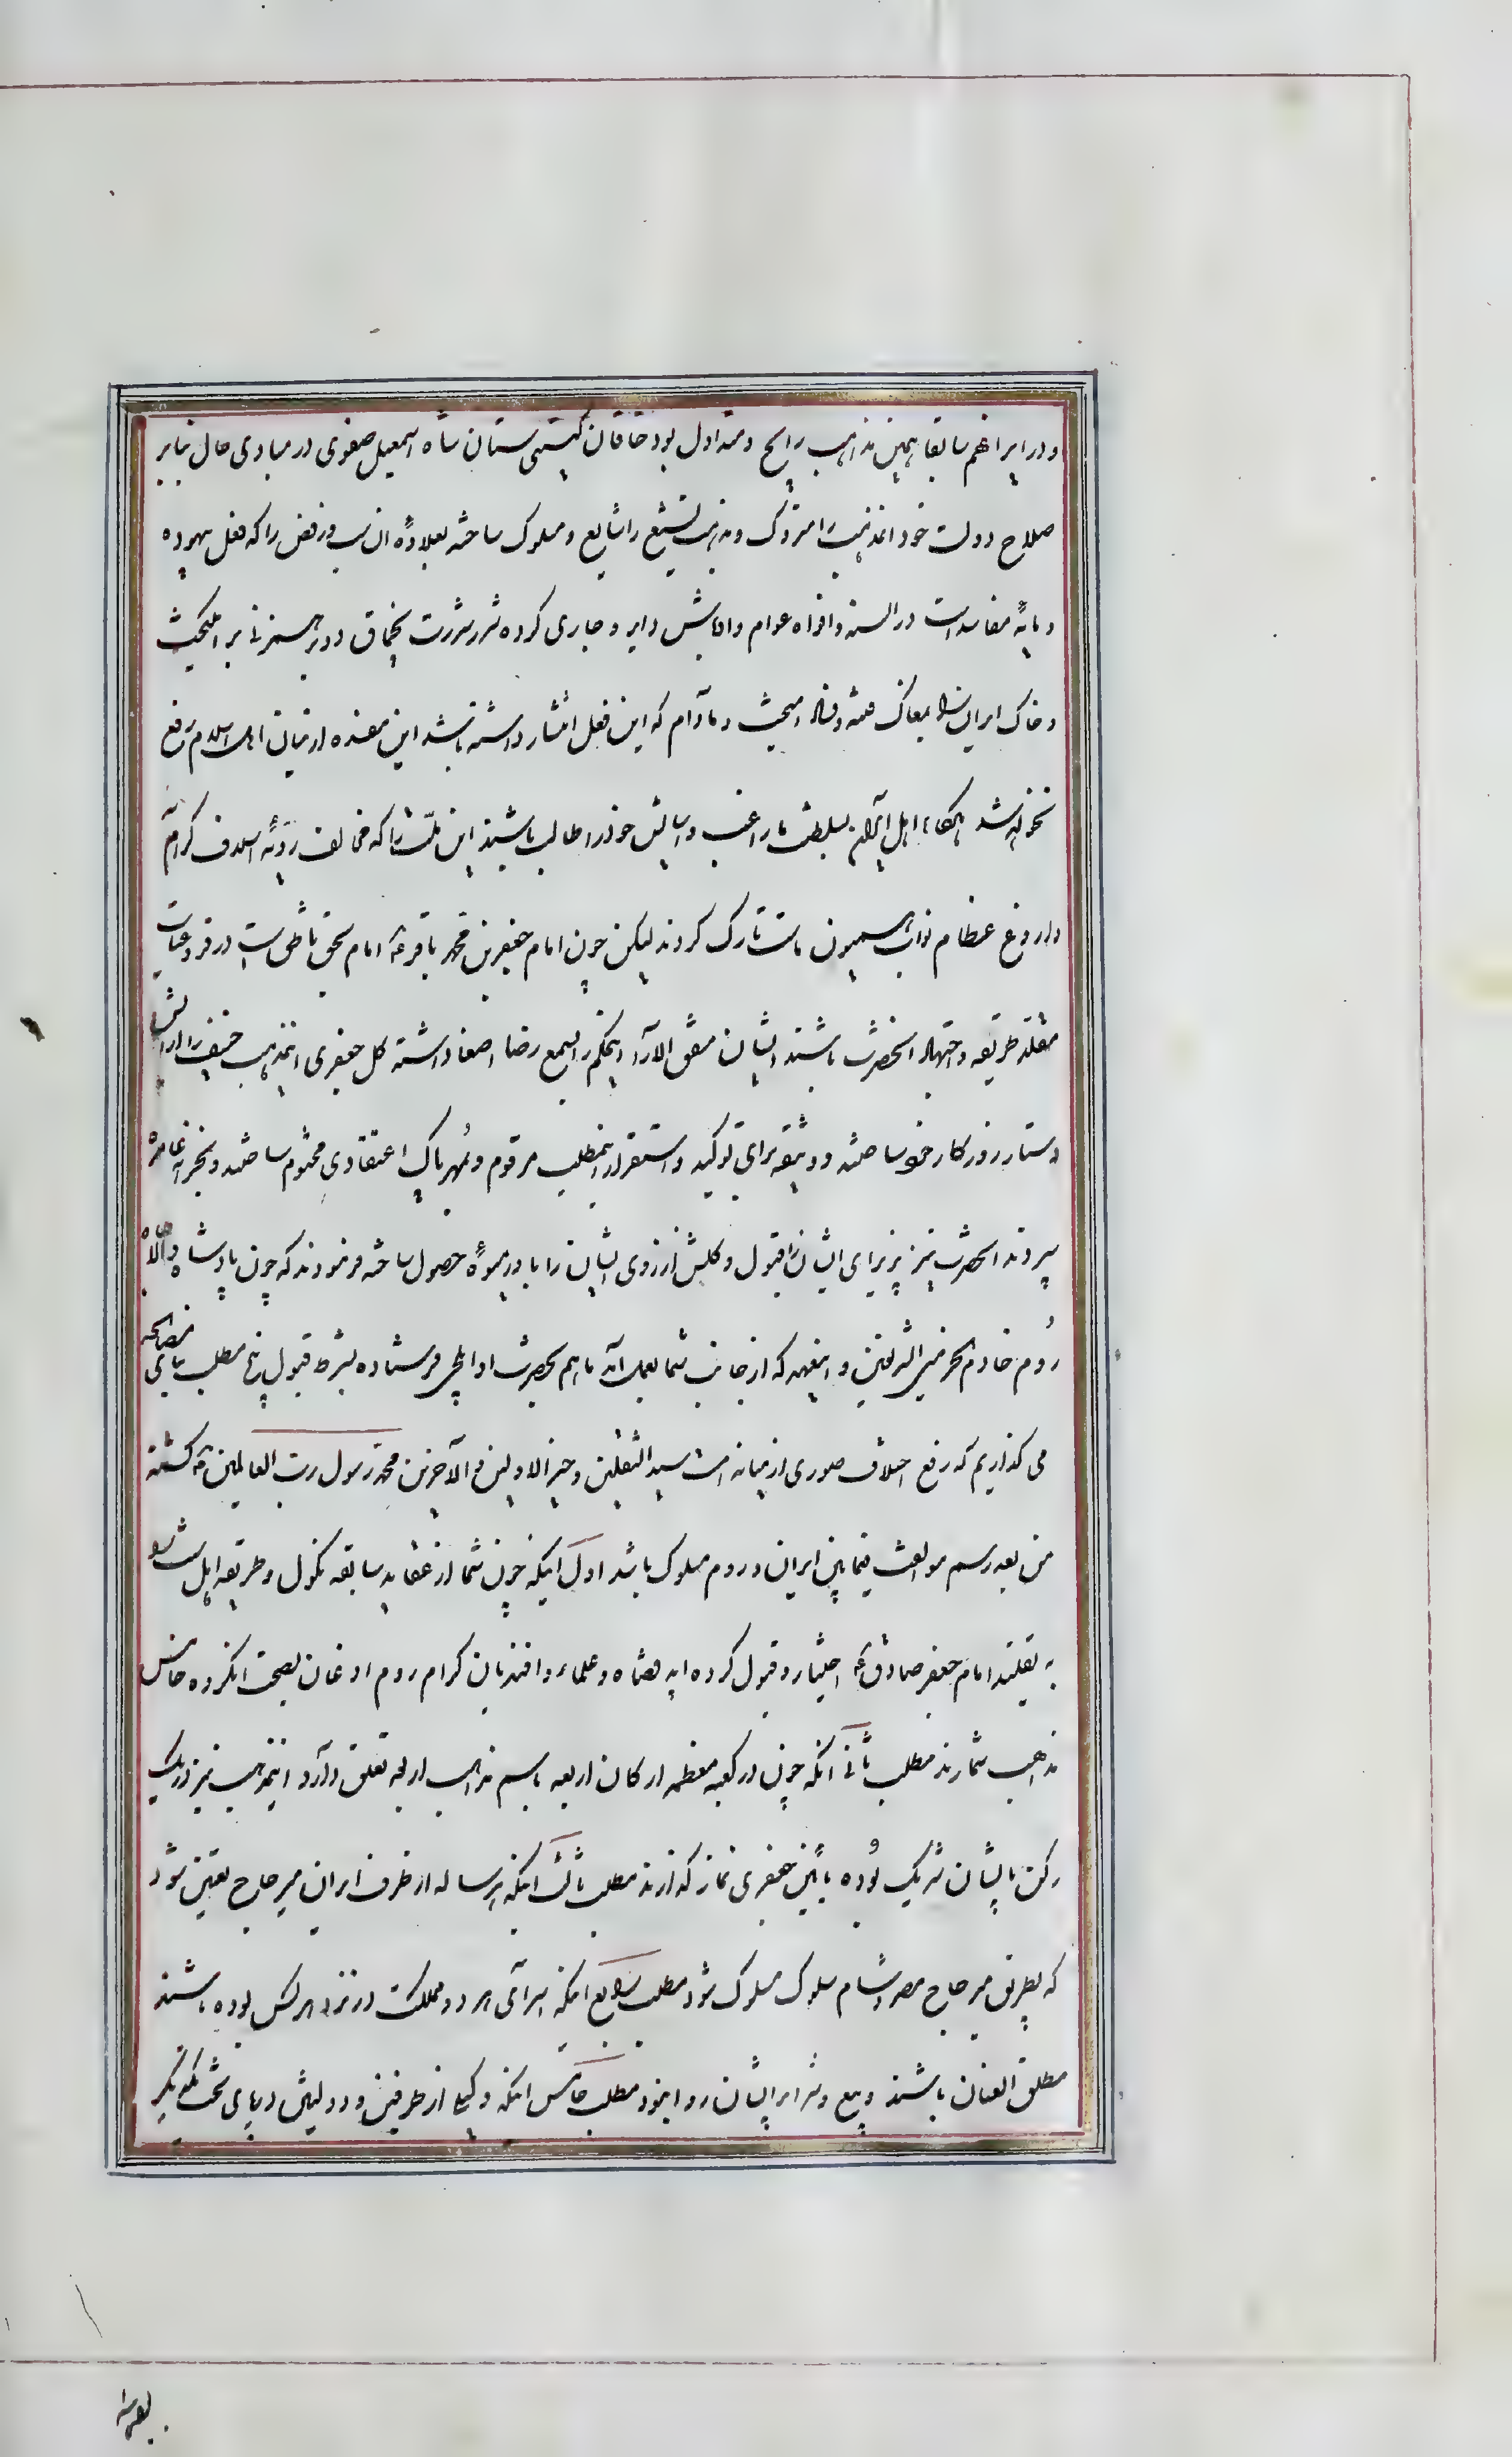 و در ایران هم سابقا همین مذاهب رایج و متداول بود خاقان گیتی ستان شاه اسمعیل صفوی در مبادی حال بنابر
صلاح دولت خود آنمذهب را متروک و مذهب تشیع را شایع و مسلوک ساخته بعلاوه آن سب و رفض را که فعل بیهوده
و مایه مفاسد است در السنه و افواه عوام و اوباش دایر و جاری کرده شرر شرارت بچخماق دو بر همزنی بر انگیخت
و خاک ایران را بمغاک فتنه و فساد امیخت و مادام که این فعل انتشار داشته باشد این مفسده از میان اهل اسلام رفع
نخواهد شد هرگاه اهل ایران بسلطنت ما راغب و آسایش خود را طالب باشند این ملت را که مخالف رویه اسلاف کرام
و اروغ عظام نواب همیون ماست تارک کردند لیکن چون امام جعفر بن محمد باقر ع امام بحق ناطق است در فروعات
مقلد طریقه و اجتهاد آنحضرت باشند ایشان متفق الارآء اینحکم را بسمع رضا اصغا داشته گل جعفری اینمذهب حنیف را آرایش
دستار روزکار خود ساختند و وثیقه برای توکید و استقرار اینمطلب مرقوم و بمهر پاک اعتقادی مختوم ساخته و بخزانه عامره
سپردند انحضرت نیز پذیرای ایشان را قبول و گلشن ارزوی ایشان را بارور میوه حصول ساخته فرمودند که چون پادشاه والاجاه
روم خادم الحرمین الشریفین و اینعهد که از جانب شما بعمل آمد ما هم بحضرت او ایلچی فرستاده بشرط قبول پنج مطلب بنای مصالحه
می گذاریم که رفع اختلاف صوری از میانه امت سید الثقلین و خیر الاولین و الآخرین محمد رسول رب العالمین ص گشته
من بعد رسم موالفت فیمابین ایران و روم مسلوک باشد اول اینکه چون شما از عقاید سابقه نکول و طریقه اهل سنت را
به تقلید امام جعفر صادق ع اختیار و قبول کرده اید قضاه و علماء و افندیان کرام روم اذعان بصحت انکرده خامس
مذاهب شمارند مطلب ثانی آنکه چون در کعبه معظمه ارکان اربعه باسم مذاهب اربعه تعلق دارد اینمذهب نیز در یک
رکن با ایشان شریک بوده بآئین جعفری نماز گذارند مطلب ثالث اینکه هر ساله از طرف ایران میر حاج تعیین شود
که بطریق میر حاج مصر و شام سلوک مسلوک شود مطلب رابع اینکه اسرای هر دو مملکت در نزد هر کس بوده باشند
مطلق العنان باشند و بیع و شرا بر ایشان روا نبود مطلب خامس اینکه وکیلی از طرفین در دولتین در پای تخت یکدیگر